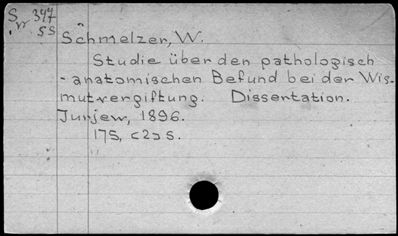 S, 347
55
Schmelzer, W.
Studie über den pathologisch
-anatomischen Befund bei der Wis-
mutvergiftung. Dissertation.
Jurjew, 1896.
175, c2 s.